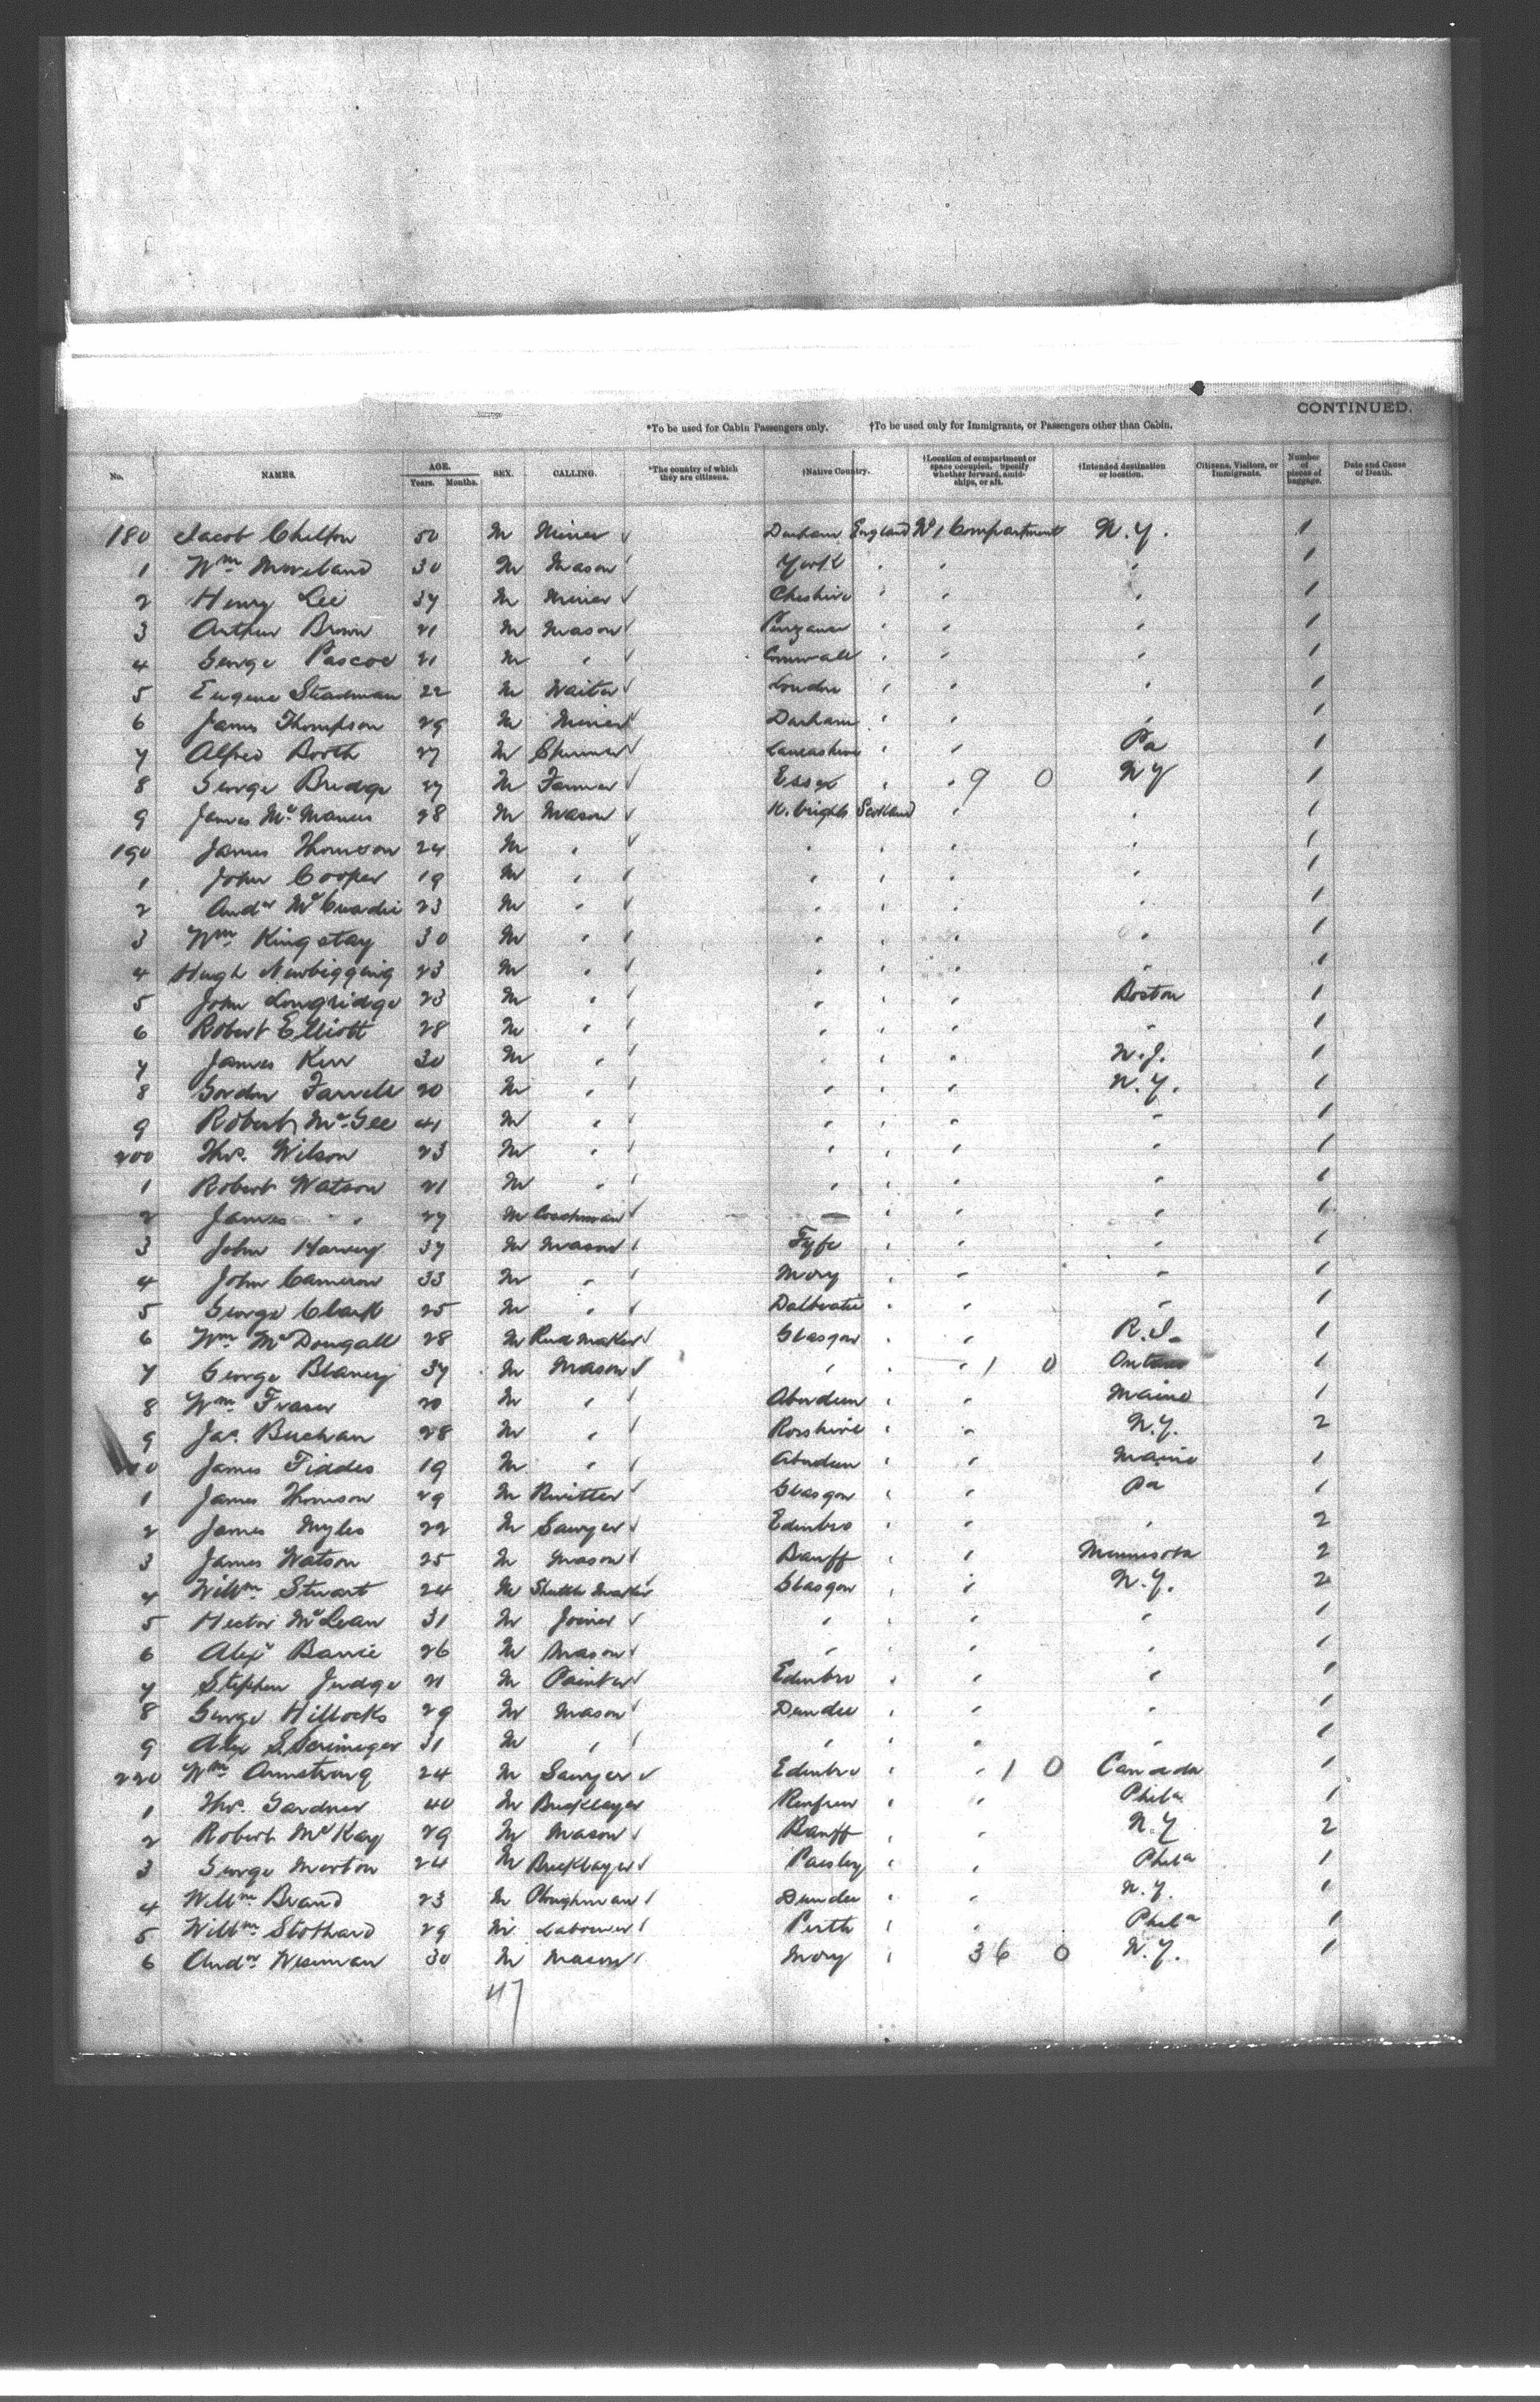 CONTINUED.
*To be used for Cabin Passengers only. †To be used only for Immigrants, or Passengers other than Cabin.
No. NAMES. AGE. Years. Months. SEX. CALLING. *The country of which they are citizens. †Native Country. †Location of compartment or space occupied. Specify whether forward, amidships, or aft. †Intended destination or location. Citizens, Visitors, or Immigrants. Number of pieces of baggage. Date and Cause of Death.
180 Jacob Chelton 50 M Miner ✓ Durham England No 1 Compartment N.Y. 1
1 Wm Moreland 30 M Mason ✓ York " " " 1
2 Henry Lee 37 M Miner ✓ Cheshire " " " 1
3 Arthur Brown 21 M Mason ✓ Penzance " " " 1
4 George Pascoe 21 M " ✓ Cornwall " " " 1
5 Eugene Steadman 22 M Waiter ✓ London " " " 1
6 James Thompson 29 M Miner ✓ Durham " " " 1
7 Alfred Booth 27 M ✓ Lancashire " " Pa 1
8 George Bridge 27 M Farmer ✓ Essex " " 9 0 NY 1
9 James McManus 28 M Mason ✓ K. bright Scotland " " 1
190 James Thomson 24 M " ✓ " " " " 1
1 John Cooper 19 M " ✓ " " " " 1
2 Andw 23 M " ✓ " " " " 1
3 Wm Kingstay 30 M " ✓ " " " " 1
4 Hugh Newbigging 23 M " ✓ " " " " 1
5 John Longridge 23 M " ✓ " " " Boston 1
6 Robert Elliott 28 M " ✓ " " " " 1
7 James Kerr 30 M " ✓ " " " N.J. 1
8 Gordon Farrell 20 M " ✓ " " " N.Y. 1
9 Robert McGee 41 M " ✓ " " " " 1
200 Thos. Wilson 23 M " ✓ " " " " 1
1 Robert Watson 21 M " ✓ " " " " 1
2 James " 27 M Coachman ✓ " " " 1
3 John Harvey 37 M Mason ✓ Fyfe " " " 1
4 John Cameron 33 M " ✓ Mory " " " 1
5 George Clark 25 M " ✓ Dalbeatie " " " 1
6 Wm McDougall 28 M Reed maker ✓ Glasgow " " R.I. 1
7 George Blaney 37 M Mason ✓ " " " 1 0 Ontario 1
8 Wm Fraser 20 M " ✓ Aberdeen " " Maine 1
9 Jas. Buchan 28 M " ✓ Rosshire " " N.Y. 2
0 James Fiddes 19 M " ✓ Aberdeen " " Maine 1
1 James Thomson 29 M Rivitter ✓ Glasgow " " Pa 1
2 James Myles 22 M Sawyer ✓ Edinbro " " " 2
3 James Watson 25 M Mason ✓ Banff " " Minnesota 2
4 Willm Stuart 24 M Shuttle Maker ✓ Glasgow " " N.Y. 2
5 Hector McLean 31 M Joiner ✓ " " " " 1
6 Alexr Barrie 26 M Mason ✓ " " " " 1
7 Stephen Judge 21 M Painter ✓ Edinbro " " " 1
8 George Hillocks 29 M Mason ✓ Dundee " " " 1
9 Alex S. Scrimeger 31 M " ✓ " " " " 1
220 Wm Armstrong 24 M Sawyer ✓ Edinbro " " 1 0 Canada 1
1 Thos. Gardner 40 M Bricklayer Renfrew " " Phila 1
2 Robert McKay 29 M Mason ✓ Banff " " N.Y 2
3 George Morton 24 M Bricklayer ✓ Paisley " " Phila 1
4 Willm Brand 23 M Ploughman ✓ Dundee " " N.Y. 1
5 Willm Stothard 29 M Labourer ✓ Perth " " Phila 1
6 Andw Wiseman 30 M Mason ✓ Mory " 36 0 N.Y. 1
47